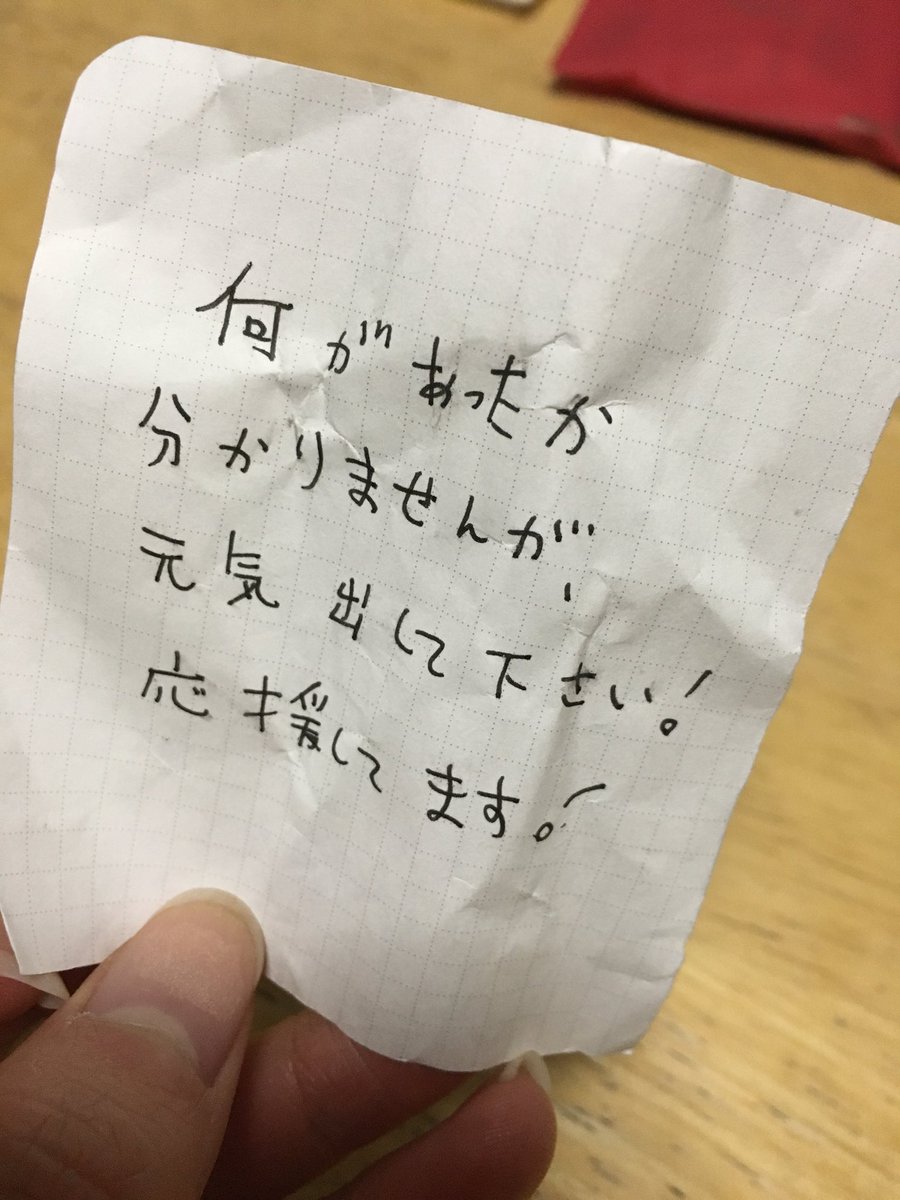 何があったか
分かりませんが、
元気出して下さい!
応援してます!